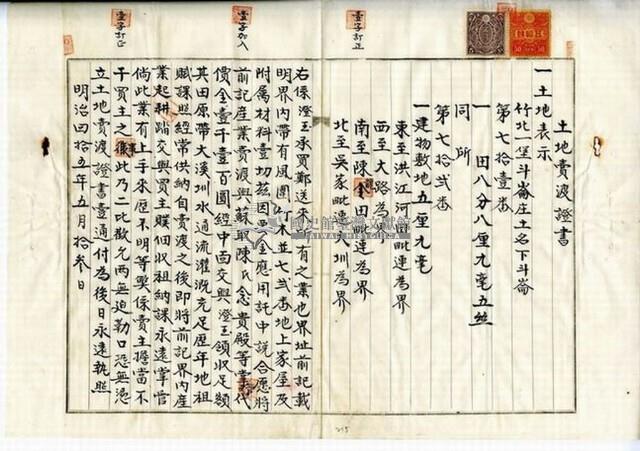 壹字訂正
壹字加入
壹字訂正
土地賣渡證書
一土地表示
竹北一堡斗崙庄土名下斗崙
第七拾壹番
一田八分八厘九毫五絲
同所
第七拾弍番
一建物敷地五厘九毫
東至洪江河田毗連為界
西至大路為界
南至陳金田毗連為界
北至吳家毗連大圳為界
右係澄玉承買鄭送來所有之業也界址前記載
明界內帶有風圍竹木並七弍番地上家屋及
附屬材料壹切茲因乏金應用託中說合愿將
前記產業賣渡與蘇 陳氏念貴殿等 代
價金壹千壹百圓經中面交與澄玉領收足額
其田原帶大溪圳水通流灌溉充足歷年地租
賦課照經常供納自賣渡之後即將前記界內產
業起耕踏交與買主贌佃收租納課永遠掌管
倘此業有上手來歷不明等獘係賣主擔當不
干買主之事此乃二比歡允兩無迫勒口恐無憑
立土地賣渡證書壹通付為後日永遠執照
明治四拾五年五月拾叁日
國史館臺灣文獻館
TAIWAN HISTORICA
215